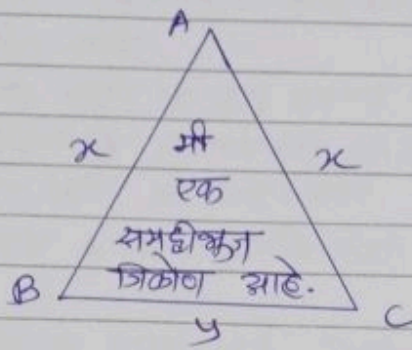 A
x
मी
x
एक
समद्वीभुज
त्रिकोण आहे.
B
C
y